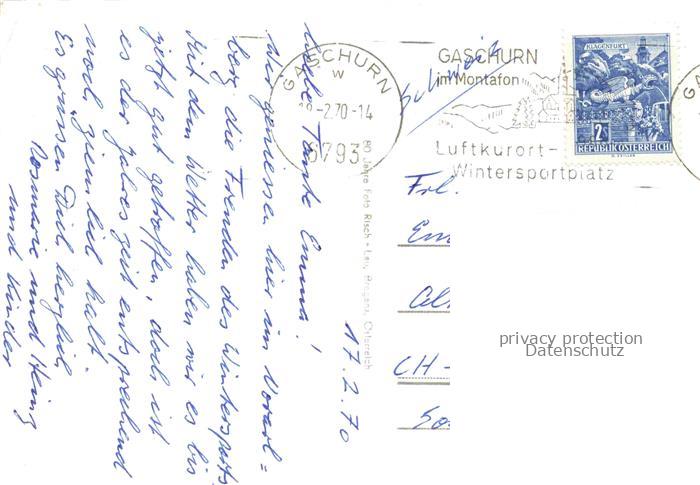 17.2.70
Liebe Tante Emma!
Wir geniessen hier im Vorarl=
berg die Freuden des Wintersports
Mit dem Wetter haben wir es bis
jetzt gut getroffen, doch ist
es der Jahreszeit entsprechend
noch ziemlich kalt.
Es grüssen Dich herzlich
Rosmarie und Heinz
und Kinder
80 Jahre Foto Risch-Lau, Bregenz, Österreich
GASCHURN
W
18-2.70-14
6793
GASCHURN
im Montafon
Luftkurort-
Wintersportplatz
Schweiz
KLAGENFURT
2
S
REPUBLIK ÖSTERREICH
GA
Frl.
Em
CH-
privacy protection
Datenschutz